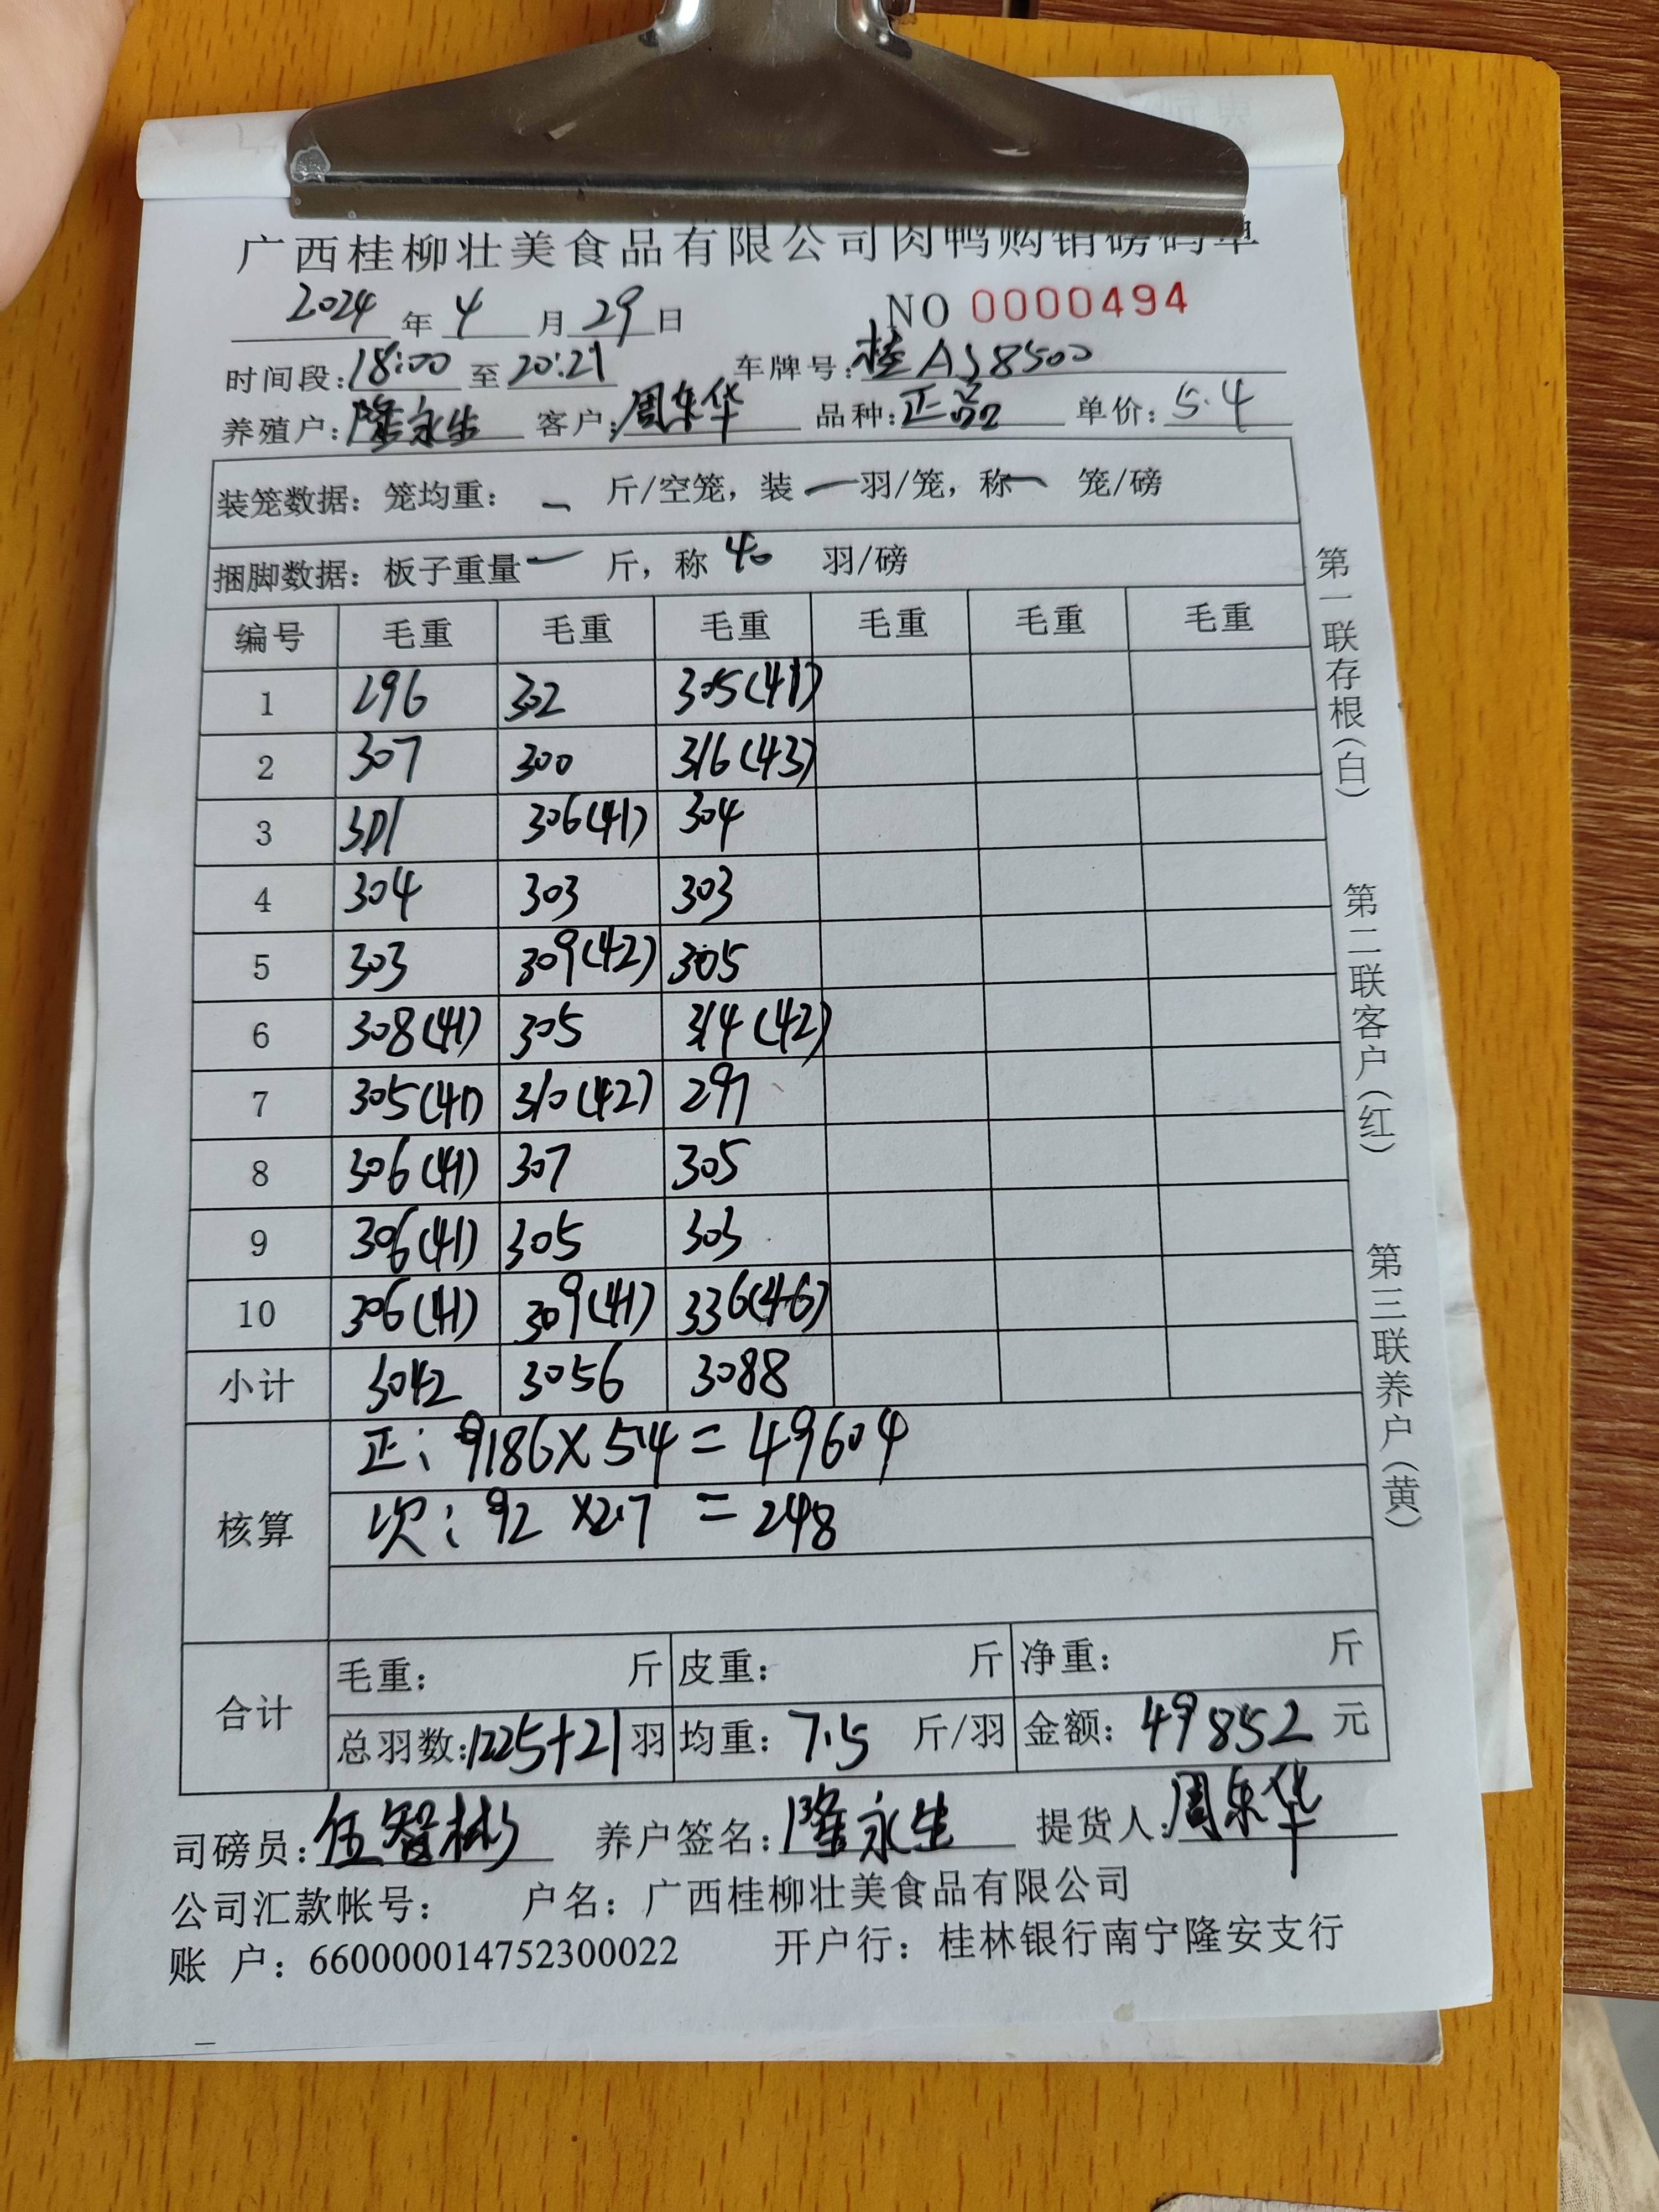 广西桂柳壮美食品有限公司肉鸭购销磅码单
2024年4月29日 NO 0000494
时间段:18:00至20:21 车牌号:桂AJ8500
养殖户:隆永生 客户:周东华 品种:正品 单价:5.4
装笼数据：笼均重：一 斤/空笼，装一羽/笼，称一 笼/磅
捆脚数据：板子重量一 斤，称40 羽/磅
编号 毛重 毛重 毛重 毛重 毛重 毛重
1 296 302 305(41)
2 307 300 316(43)
3 301 306(41) 304
4 304 303 303
5 303 309(42) 305
6 308(41) 305 314(42)
7 305(41) 310(42) 297
8 306(41) 307 305
9 306(41) 305 303
10 306(41) 309(41) 336(46)
小计 3042 3056 3088
核算
正: 9186×5.4=49604
次: 92×2.7=248
合计
毛重： 斤 皮重： 斤 净重： 斤
总羽数:1225+21羽 均重：7.5 斤/羽 金额：49852 元
司磅员:伍智彬 养户签名:隆永生 提货人:周东华
公司汇款帐号： 户名：广西桂柳壮美食品有限公司
账 户：660000014752300022 开户行：桂林银行南宁隆安支行
第一联存根(白)
第二联客户(红)
第三联养户(黄)